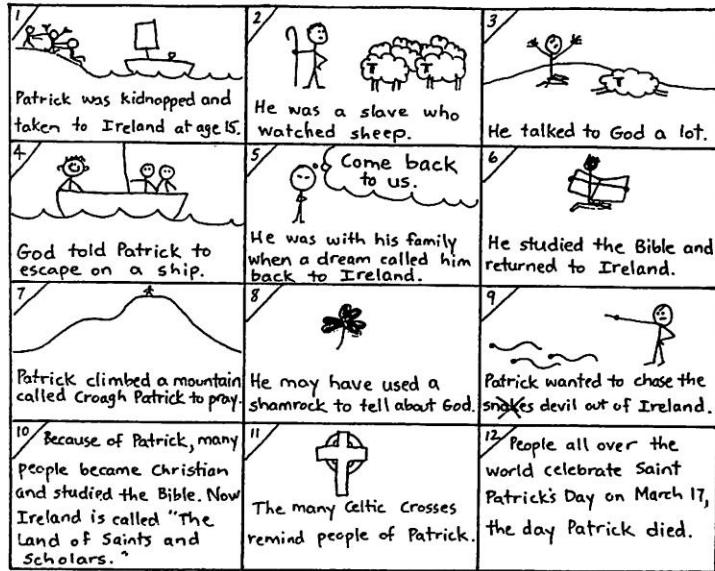 1
Patrick was kidnapped and
taken to Ireland at age 15.
2
He was a slave who
watched sheep.
3
He talked to God a lot.
4
God told Patrick to
escape on a ship.
5
Come back
to us.
He was with his family
when a dream called him
back to Ireland.
6
He studied the Bible and
returned to Ireland.
7
Patrick climbed a mountain
called Croagh Patrick to pray.
8
He may have used a
shamrock to tell about God.
9
Patrick wanted to chase the
snakes devil out of Ireland.
10
Because of Patrick, many
people became Christian
and studied the Bible. Now
Ireland is called "The
Land of Saints and
Scholars."
11
The many Celtic Crosses
remind people of Patrick.
12
People all over the
world celebrate Saint
Patrick's Day on March 17,
the day Patrick died.